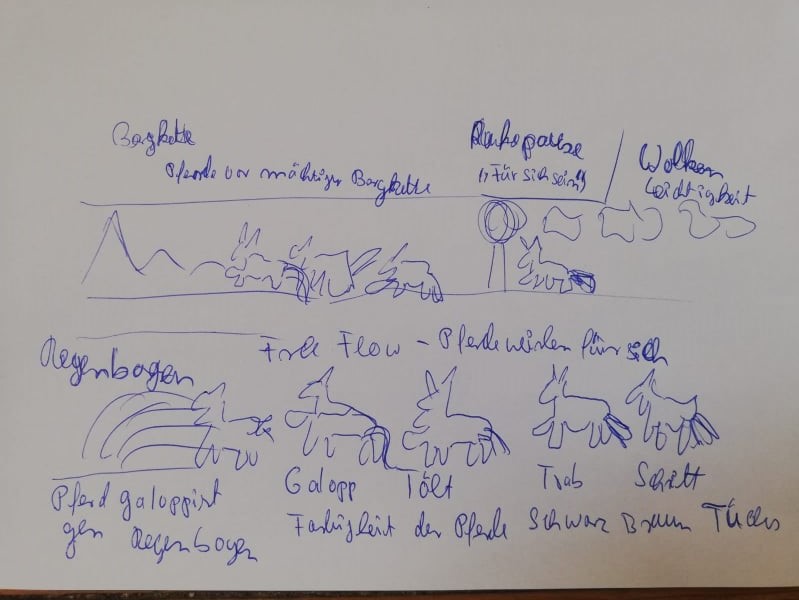 Bergkette
Pferde vor mächtiger Bergkette
Ruhepause
"Für sich sein"
Wolken
Leichtigkeit
Free Flow - Pferde für sich
Regenbogen
Galopp Tölt Trab Schritt
Pferd galoppiert
gen Regenbogen
Farbigkeit der Pferde Schwarz Braun